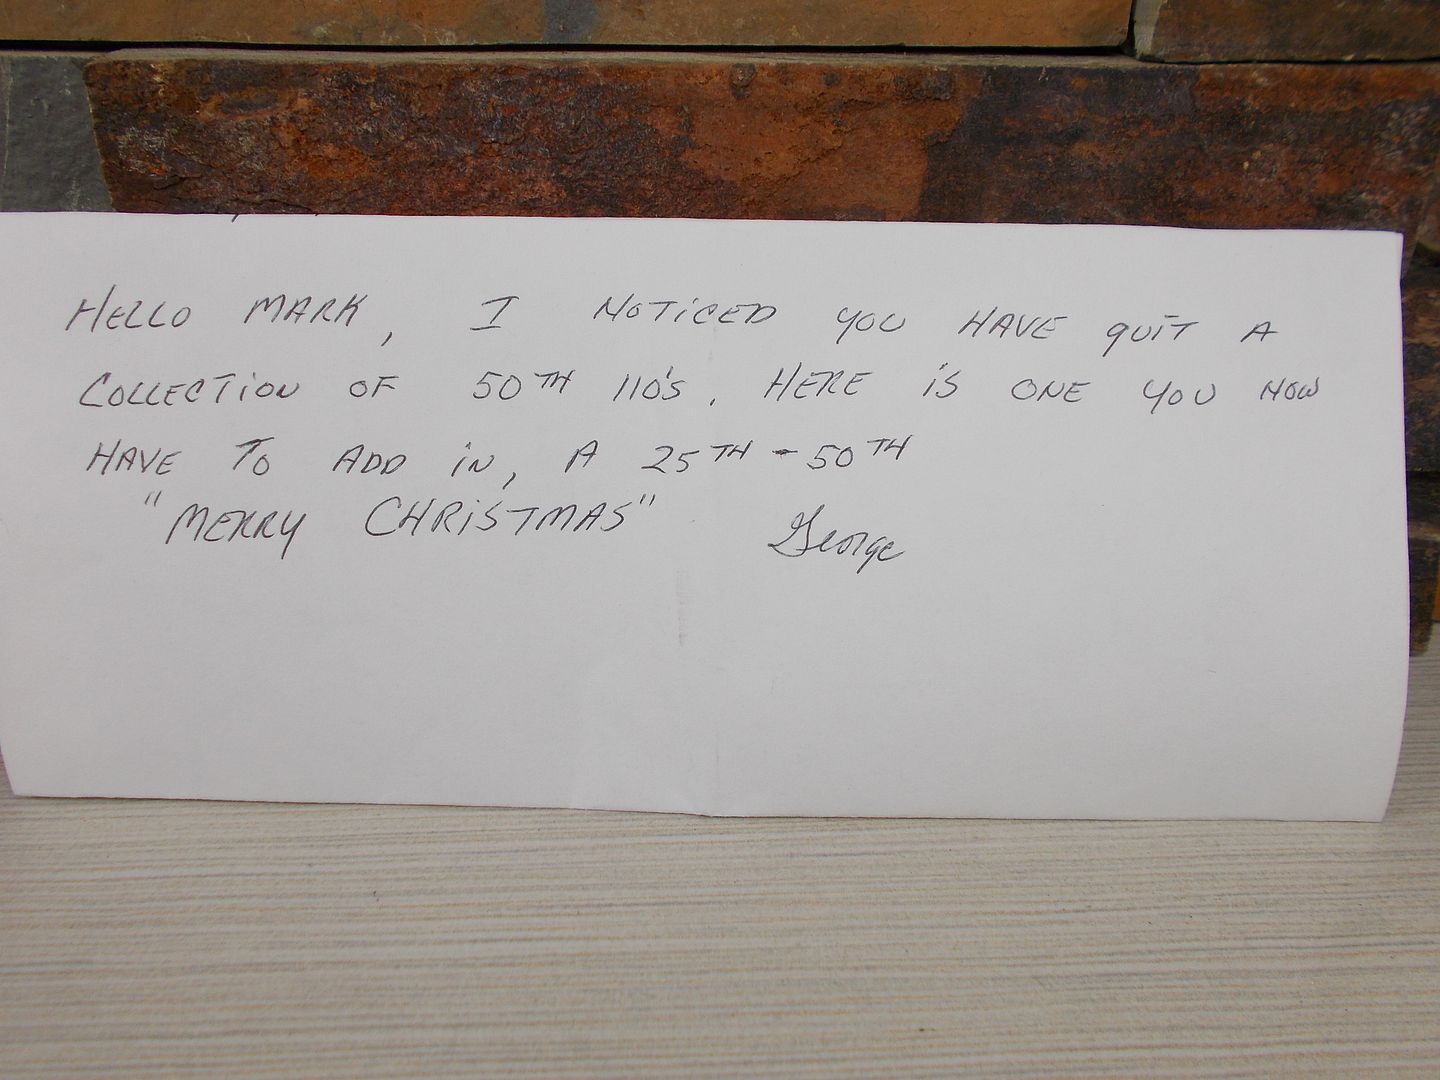 HELLO MARK, I NOTICED YOU HAVE QUIT A
COLLECTION OF 50TH 110'S. HERE IS ONE YOU NOW
HAVE TO ADD IN, A 25TH - 50TH
"MERRY CHRISTMAS" George